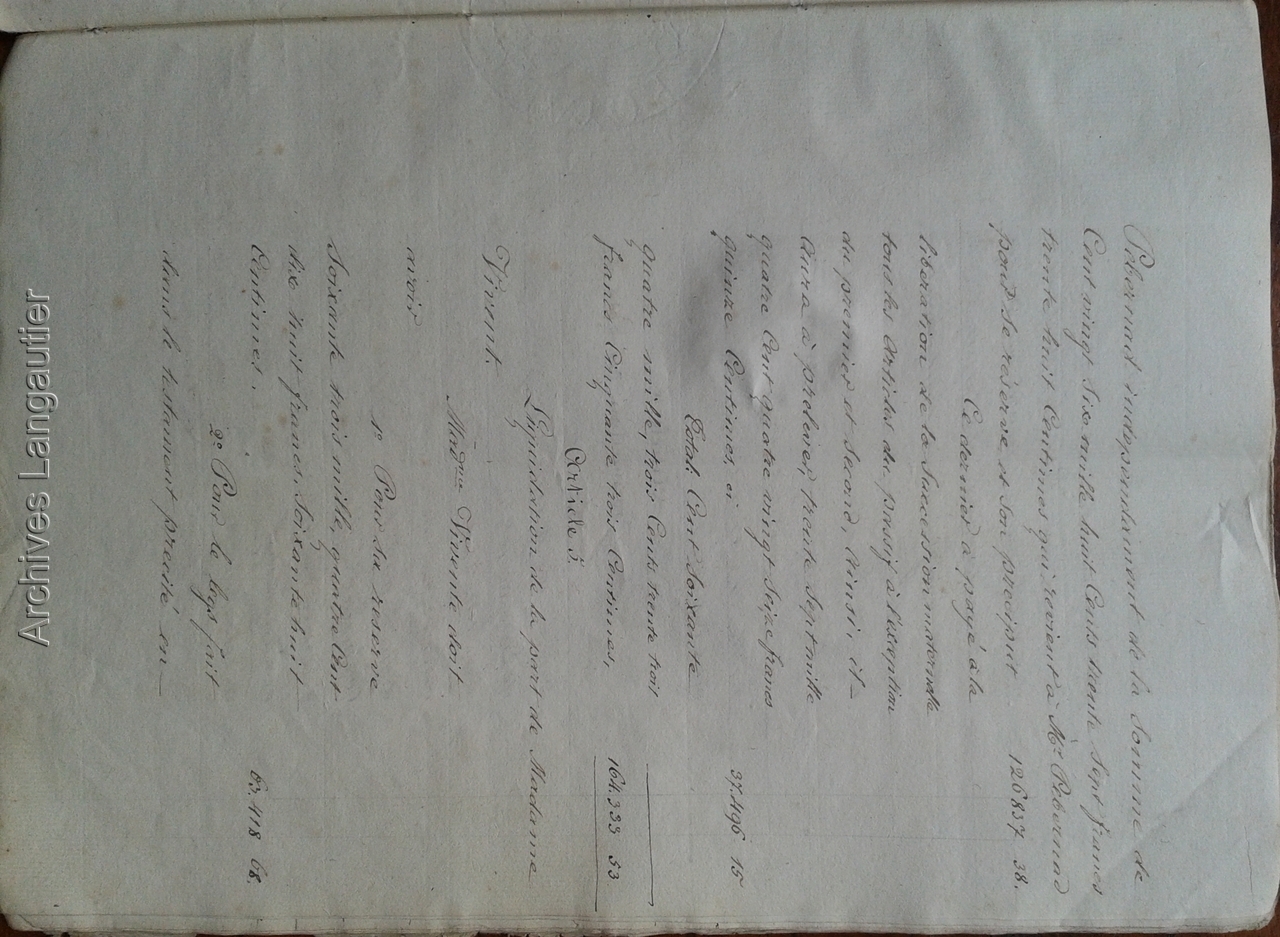 Pebernad independamment de la Somme de
Cent vingt Six mille huit Cents trente Sept francs
trente huit Centimes qui revient à Mr Pebernad
pour sa réserve et son préciput 126837 38.
Ce dernier a payé à la
libération de la Succession maternelle
tous les articles du passif à l'exception
du premier et Second, Ainsi, il
aura à prelever, trente Sept mille
quatre Cent quatre vingt Seize francs
quinze Centimes, ci 37.496 15
Total Cent Soixante
quatre mille, trois Cents trente trois
francs Cinquante trois Centimes, 164.333 53
Article 5.
Liquidation de la part de Madame
Vivent.
Madame Vivente doit
avoir
1° Pour sa reserve
Soixante trois mille, quatre Cent
dix huit francs, Soixante huit
Centimes. 63.418 68.
2° Pour le legs fait
dans le testament precité en
Archives Langautier